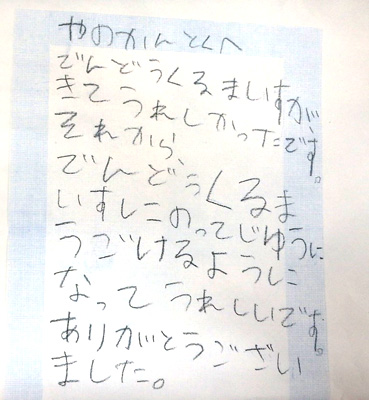 やのかんとくへ
でんどうくるまいすが、
きてうれしかったです。
それから、
でんどうくるま
いすにのってじゆうに
うごけるように
なってうれしいです。
ありがとうござい
ました。